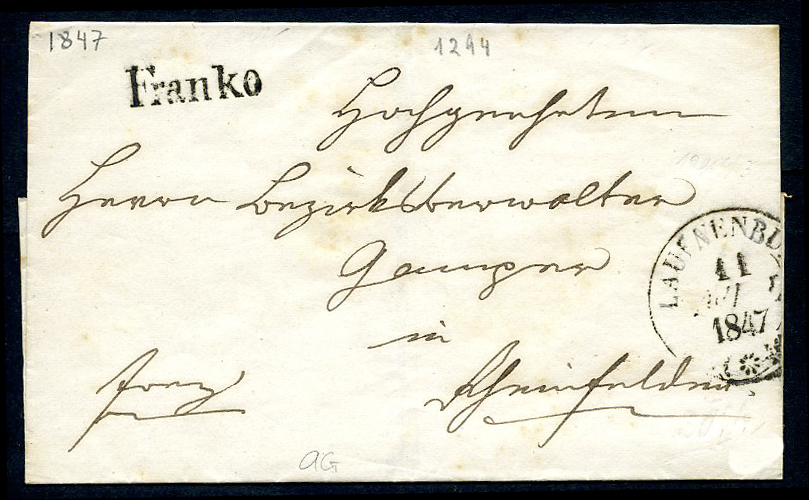 1847
1294
Franko
Hochgeehrten
Herrn Bezirksverwalter
in
Rheinfelden.
franz
LAUFENBU
11
1847
AG